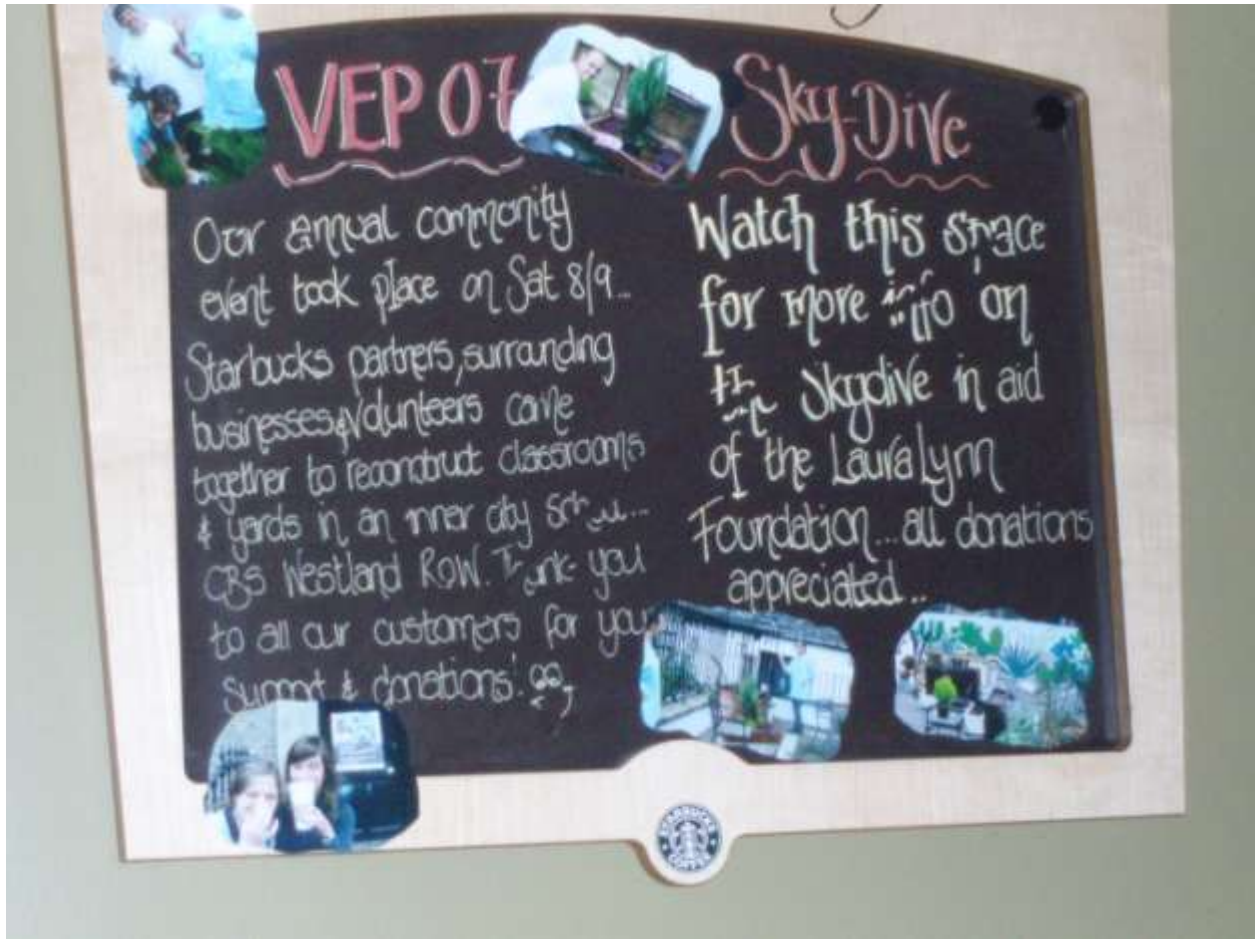 VEP 07
Our annual community
event took place on Sat 8/9...
Starbucks partners, surrounding
businesses & volunteers came
together to reconstruct classrooms
& yards in an inner city
CBS Westland Row. Thank you
to all our customers for your
support & donations!
Sky-Dive
Watch this space
for more info on
skydive in aid
of the Laura Lynn
Foundation... all donations
appreciated...
STARBUCKS
COFFEE